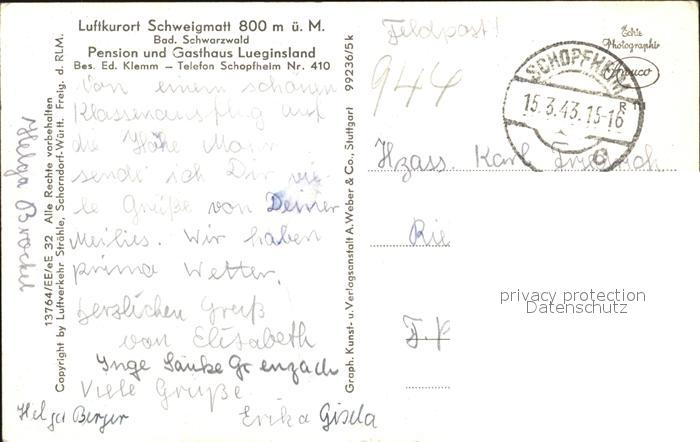 Luftkurort Schweigmatt 800 m ü. M.
Bad. Schwarzwald
Pension und Gasthaus Lueginsland
Bes. Ed. Klemm – Telefon Schopfheim Nr. 410
Von einem schönen
Klassenausflug auf
die Hohe Mor
sende ich Dir vie-
le Grüße von Deiner
Meilies. Wir haben
prima Wetter.
Herzlichen Gruß
von Elisabeth
Inge Grenzach
Viele Grüße
Helga Berger
Erika Gisela
Helga Brockel
13764/EE/eE 32 Alle Rechte vorbehalten
Copyright by Luftverkehr Strähle, Schorndorf-Württ. Freig. d. RLM.
Graph. Kunst- u. Verlagsanstalt A. Weber & Co., Stuttgart 99236/5k
Feldpost!
944
Echte
Photographie
SCHOPFHEIM
15.3.43.15-16
Karl Friedrich
Rie
F.P
privacy protection
Datenschutz